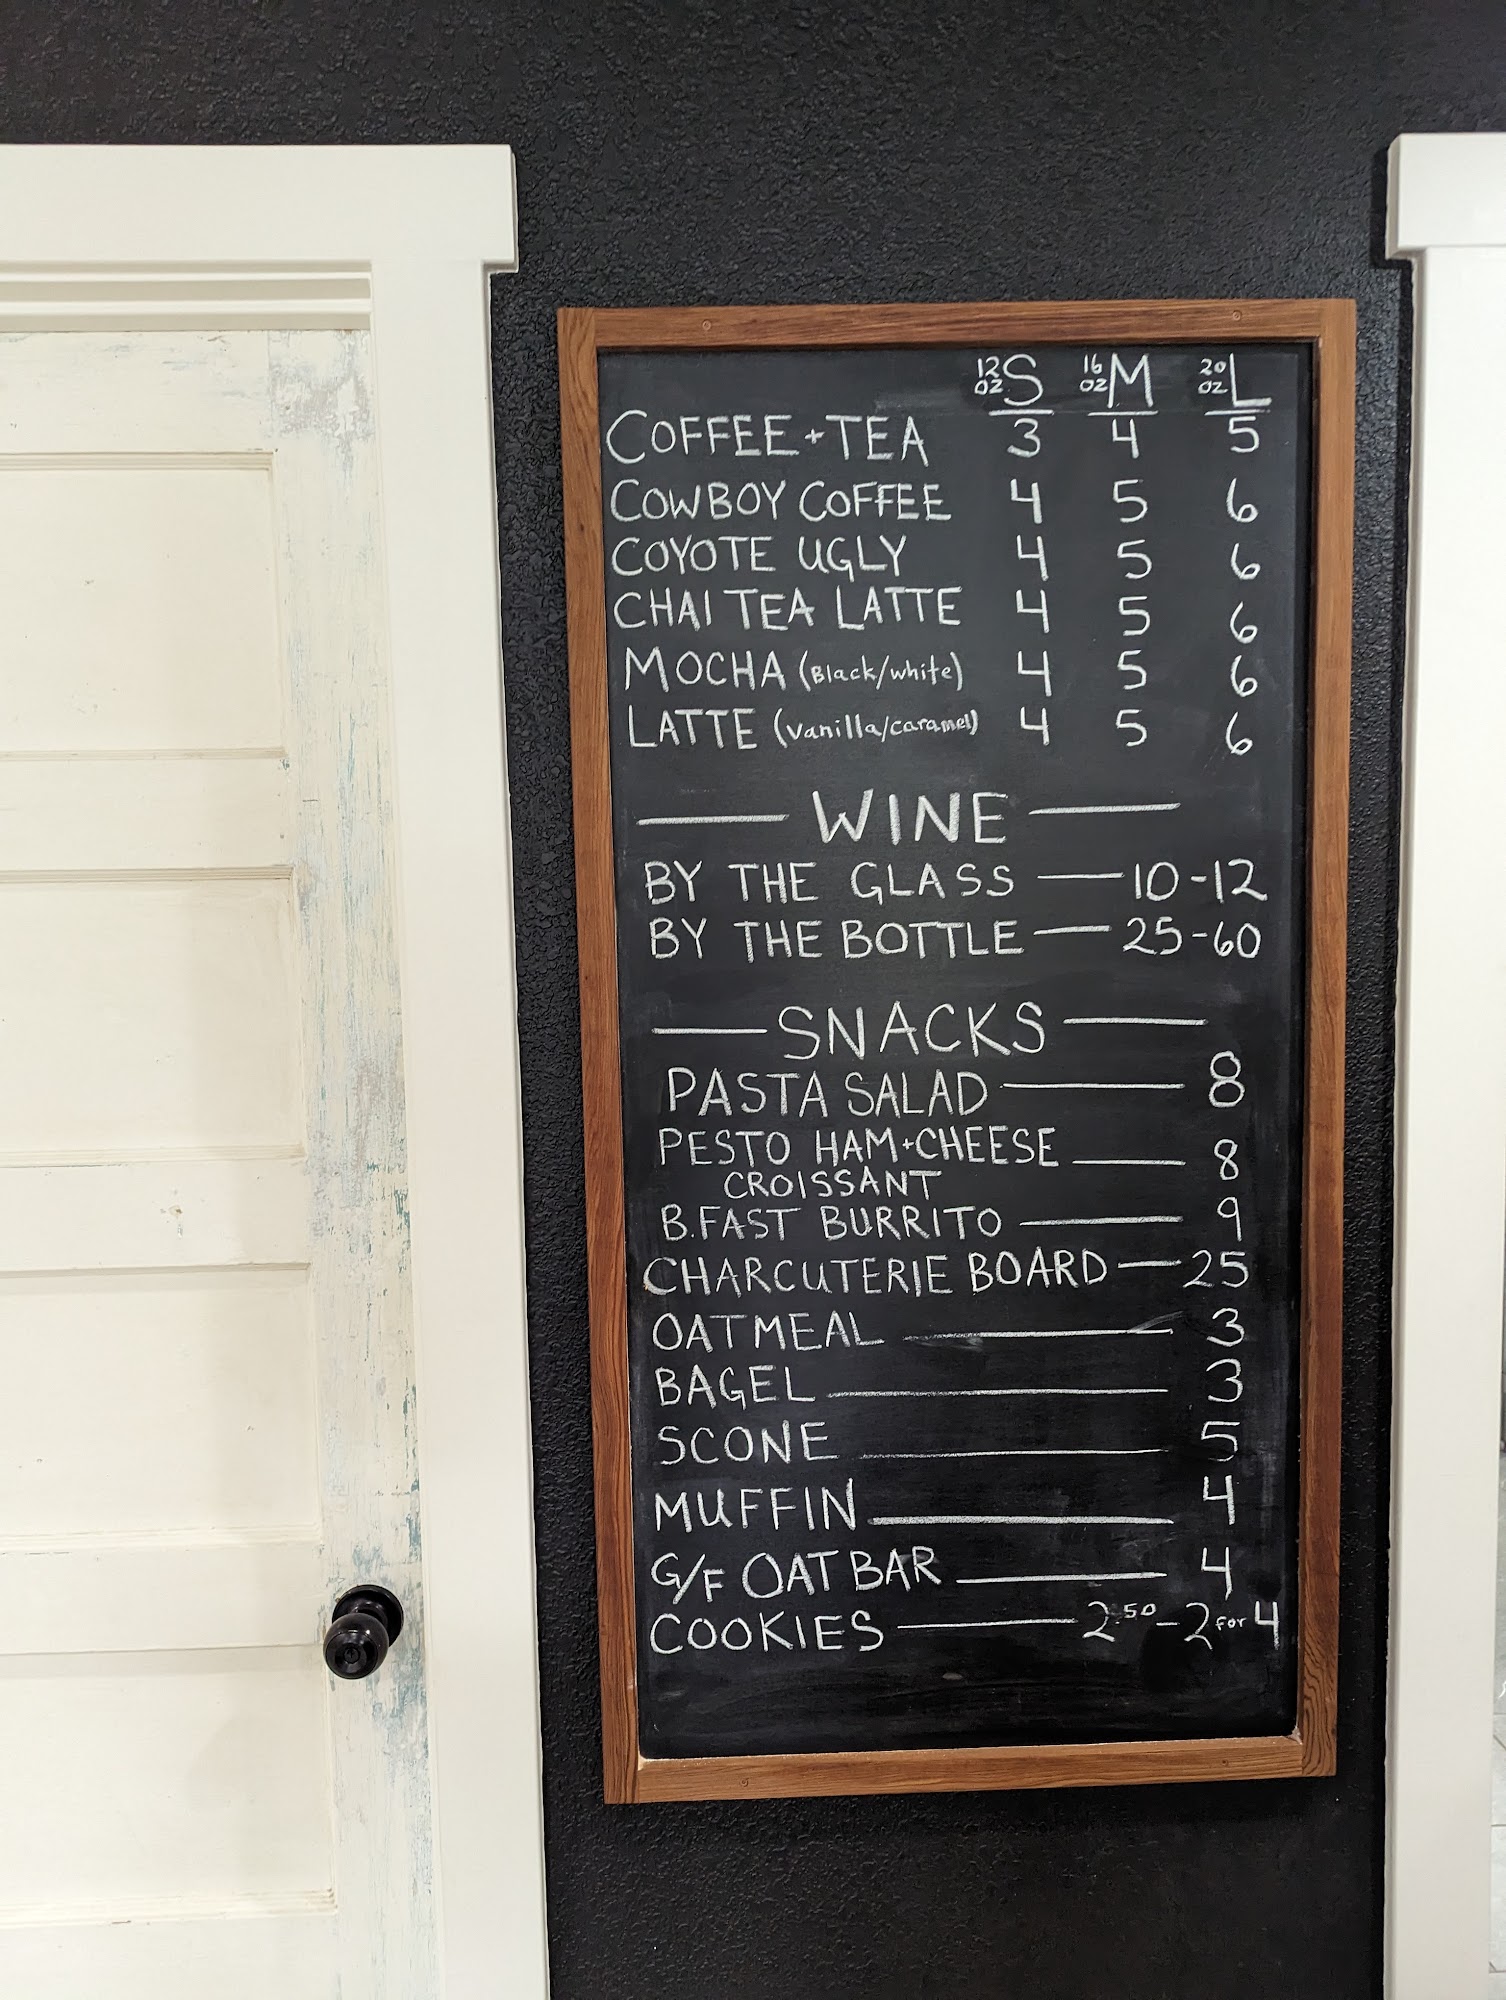 12 OZ S 16 OZ M 20 OZ L
COFFEE + TEA 3 4 5
COWBOY COFFEE 4 5 6
COYOTE UGLY 4 5 6
CHAI TEA LATTE 4 5 6
MOCHA (Black/white) 4 5 6
LATTE (vanilla/caramel) 4 5 6
WINE
BY THE GLASS — 10-12
BY THE BOTTLE — 25-60
SNACKS
PASTA SALAD — 8
PESTO HAM+CHEESE — 8
CROISSANT
B.FAST BURRITO — 9
CHARCUTERIE BOARD — 25
OATMEAL — 3
BAGEL — 3
SCONE — 5
MUFFIN — 4
G/F OAT BAR — 4
COOKIES — 2.50 - 2 for 4